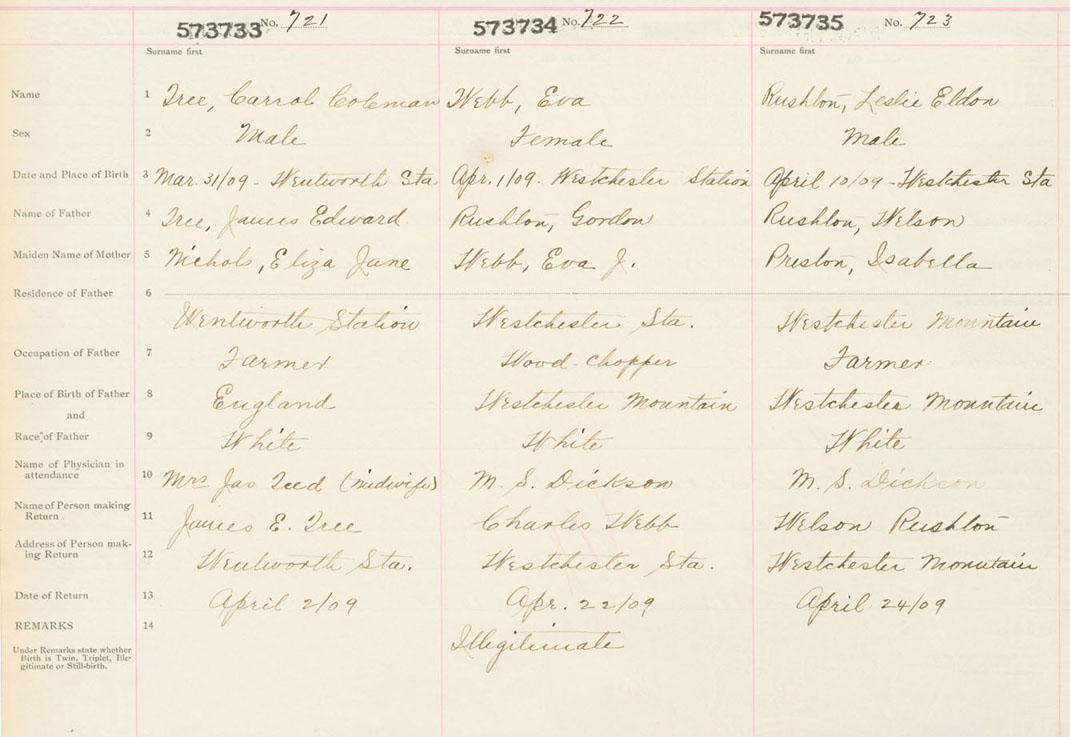 573733 No. 721 573734 No. 722 573735 No. 723
Surname first Surname first Surname first
Name 1 Tree, Carrol Coleman Webb, Eva Rushton, Leslie Eldon
Sex 2 Male Female Male
Date and Place of Birth 3 Mar. 31/09 - Wentworth Sta Apr. 1/09. Westchester Station April 10/09 - Westchester Sta
Name of Father 4 Tree, James Edward Rushton, Gordon Rushton, Welson
Maiden Name of Mother 5 Nichols, Eliza Jane Webb, Eva J. Preston, Isabella
Residence of Father 6
Wentworth Station Westchester Sta. Westchester Mountain
Occupation of Father 7 Farmer Wood-chopper Farmer
Place of Birth of Father 8 England Westchester Mountain Westchester Mountain
and
Race of Father 9 White White White
Name of Physician in
attendance 10 Mrs Jas Teed (midwife) M. S. Dickson M. S. Dickson
Name of Person making
Return 11 James E. Tree Charles Webb Welson Rushton
Address of Person mak-
ing Return 12 Wentworth Sta. Westchester Sta. Westchester Mountain
Date of Return 13 April 2/09 Apr. 22/09 April 24/09
REMARKS 14 Illegitimate
Under Remarks state whether
Birth is Twin, Triplet, Ille-
gitimate or Still-birth.